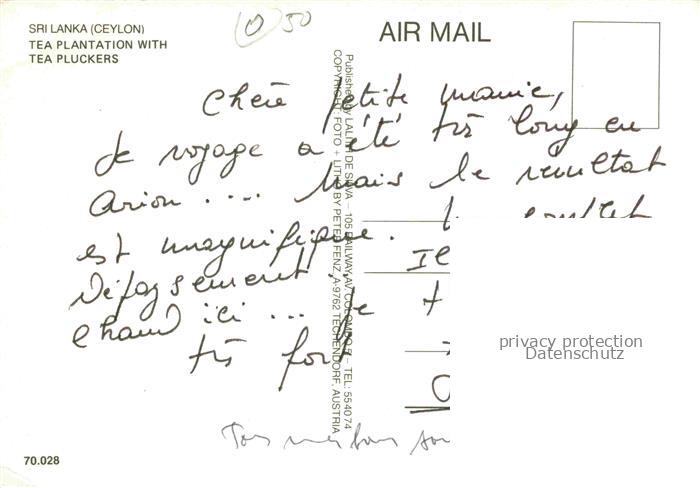 SRI LANKA (CEYLON)
TEA PLANTATION WITH
TEA PLUCKERS
0,50
AIR MAIL
Published by LALITH DE SILVA – 105 RAILWAY AV. COLOMBO 5 – TEL: 554074
COPYRIGHT, FOTO + LITHO BY PETER FENZ, A-9762 TECHENDORF, AUSTRIA
Chère petite mamie,
Le voyage a été très long en
avion .... mais le résultat
est magnifique.
Dépaysement
chaud ici ...
très fort
privacy protection
Datenschutz
70.028